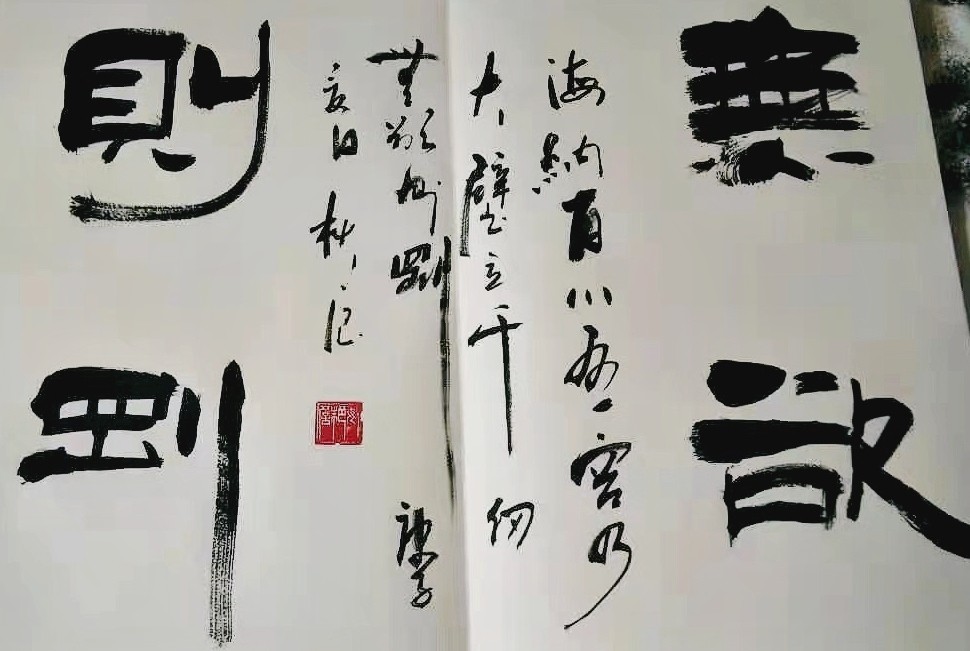 無欲
海納百川有容乃
大壁立千仞
無欲則剛庚子
夏日
則剛